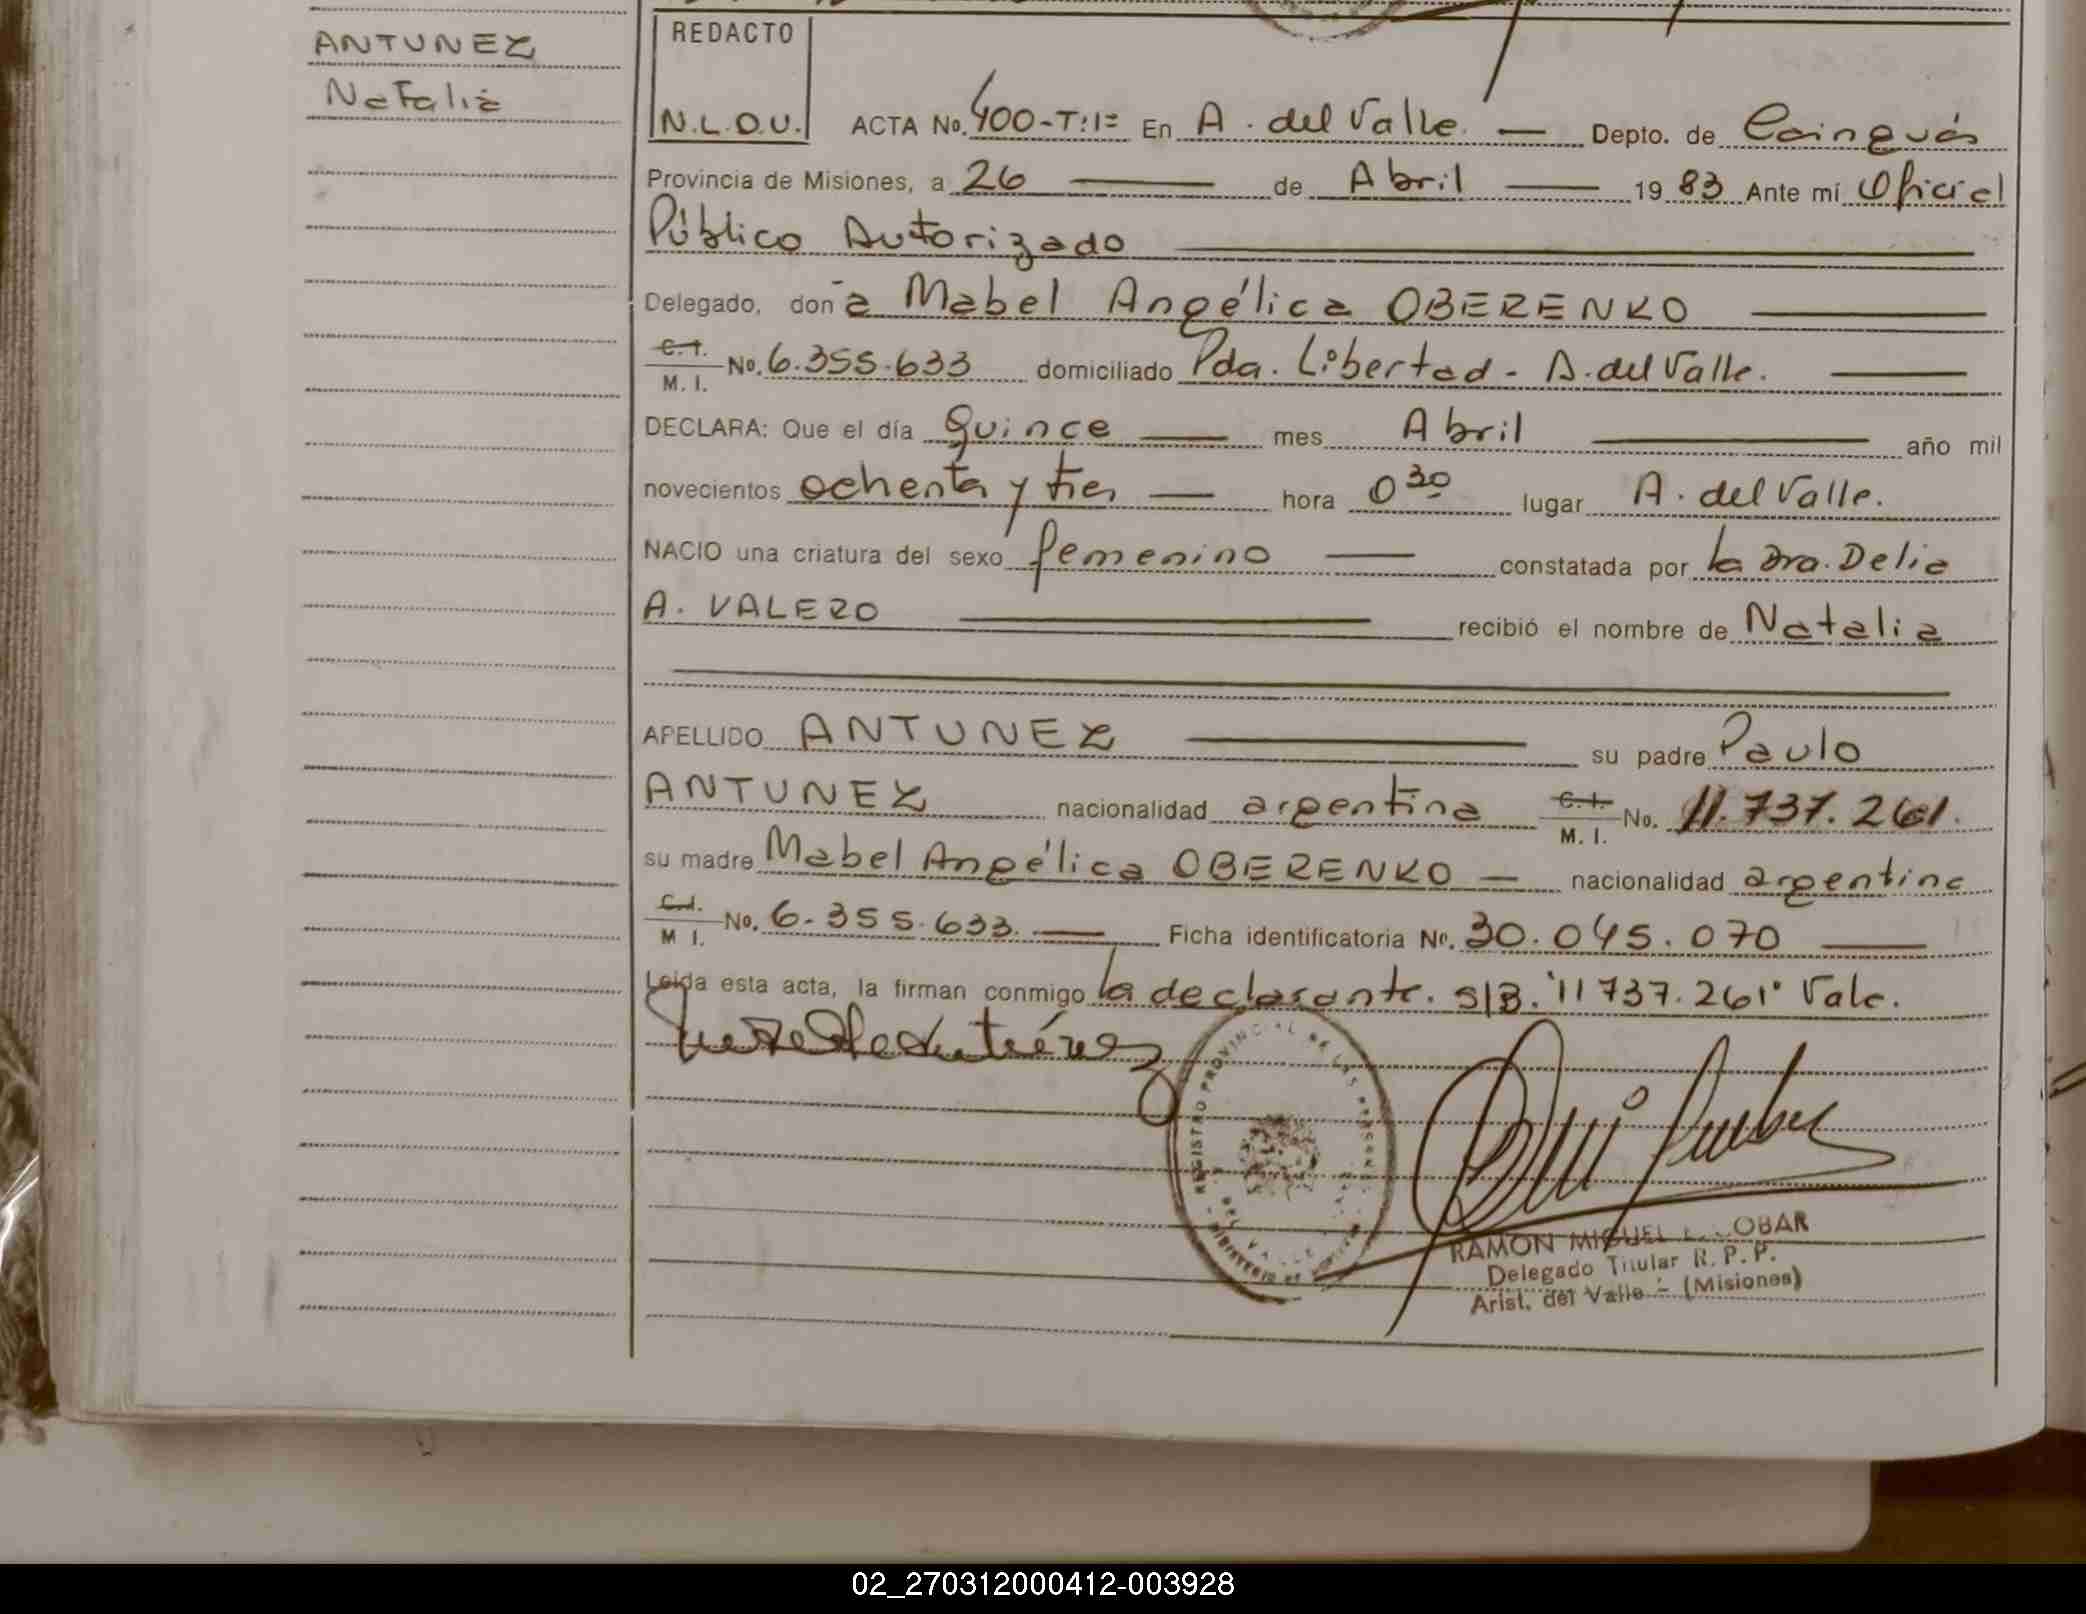 ANTUNEZ
Natalia
REDACTO
N.L.D.U.
ACTA No. 400-T:1º En A. del Valle. — Depto. de Cainguás
Provincia de Misiones, a 26 — de Abril — 19 83 Ante mí Oficial
Público Autorizado —
Delegado, don a Mabel Angélica OBERENKO —
C.I. M. I. No. 6.355.633 domiciliado Pda. Libertad - A. del Valle. —
DECLARA: Que el día quince — mes Abril — año mil
novecientos ochenta y tres — hora 0 30 lugar A. del Valle.
NACIO una criatura del sexo femenino — constatada por la Dra. Delia
A. VALERO — recibió el nombre de Natalia
APELLIDO ANTUNEZ — su padre Paulo
ANTUNEZ nacionalidad argentina C.I. M. I. No. 11.737.261.
su madre Mabel Angélica OBERENKO — nacionalidad argentina
C.I. M I. No. 6.355.633. — Ficha identificatoria Nº. 30.045.070 —
Leida esta acta, la firman conmigo la declarante. S/B. "11737.261" Vale.
REGISTRO PROVINCIAL DE LAS PERSONAS
DEL VALLE
RAMON MIGUEL OBAR
Delegado Titular R.P.P.
Arist. del Valle - (Misiones)
02_270312000412-003928